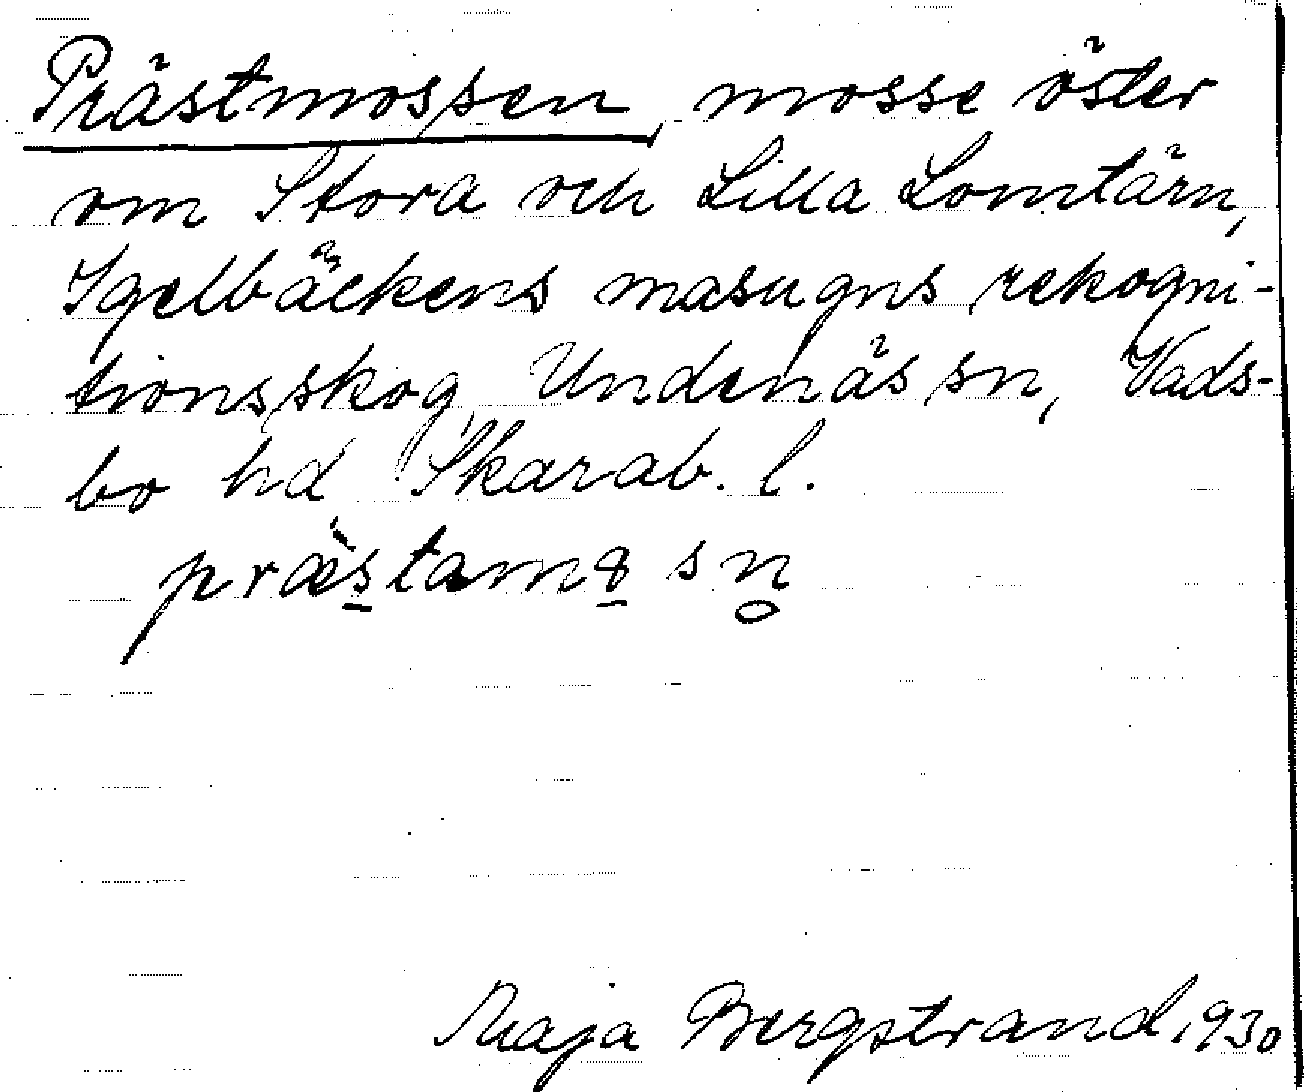 Prästmossen, mosse öster
om Stora och Lilla Lomtärn,
Igelbäckens masugns rekogni-
tionsskog, Undenäs sn, Vads-
bo hd Skarab. l.
Maja Bergstrand 1930